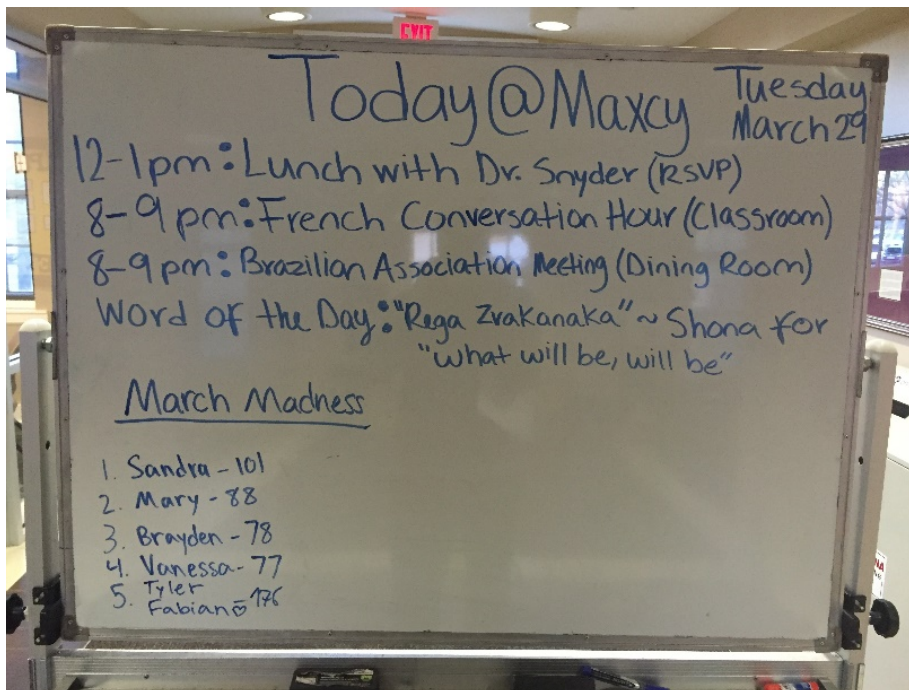 EXIT
Today@Maxcy
Tuesday
March 29
12-1pm: Lunch with Dr. Snyder (RSVP)
8-9pm: French Conversation Hour (Classroom)
8-9pm: Brazilian Association Meeting (Dining Room)
Word of the Day: "Rega Zvakanaka" ~ Shona for
"what will be, will be"
March Madness
1. Sandra - 101
2. Mary - 88
3. Brayden - 78
4. Vanessa - 77
5. Tyler
Fabian 176